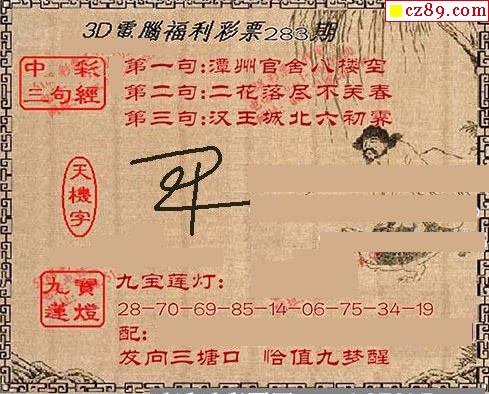 cz89.com
3D電腦福利彩票283期
中彩
三句經
第一句:潭州官舍八楼空
第二句:二花落尽不关春
第三句:汉王城北六初霁
天機字
九寶
蓮燈
九宝莲灯:
28-70-69-85-14-06-75-34-19
配:
发向三塘口 恰值九梦醒